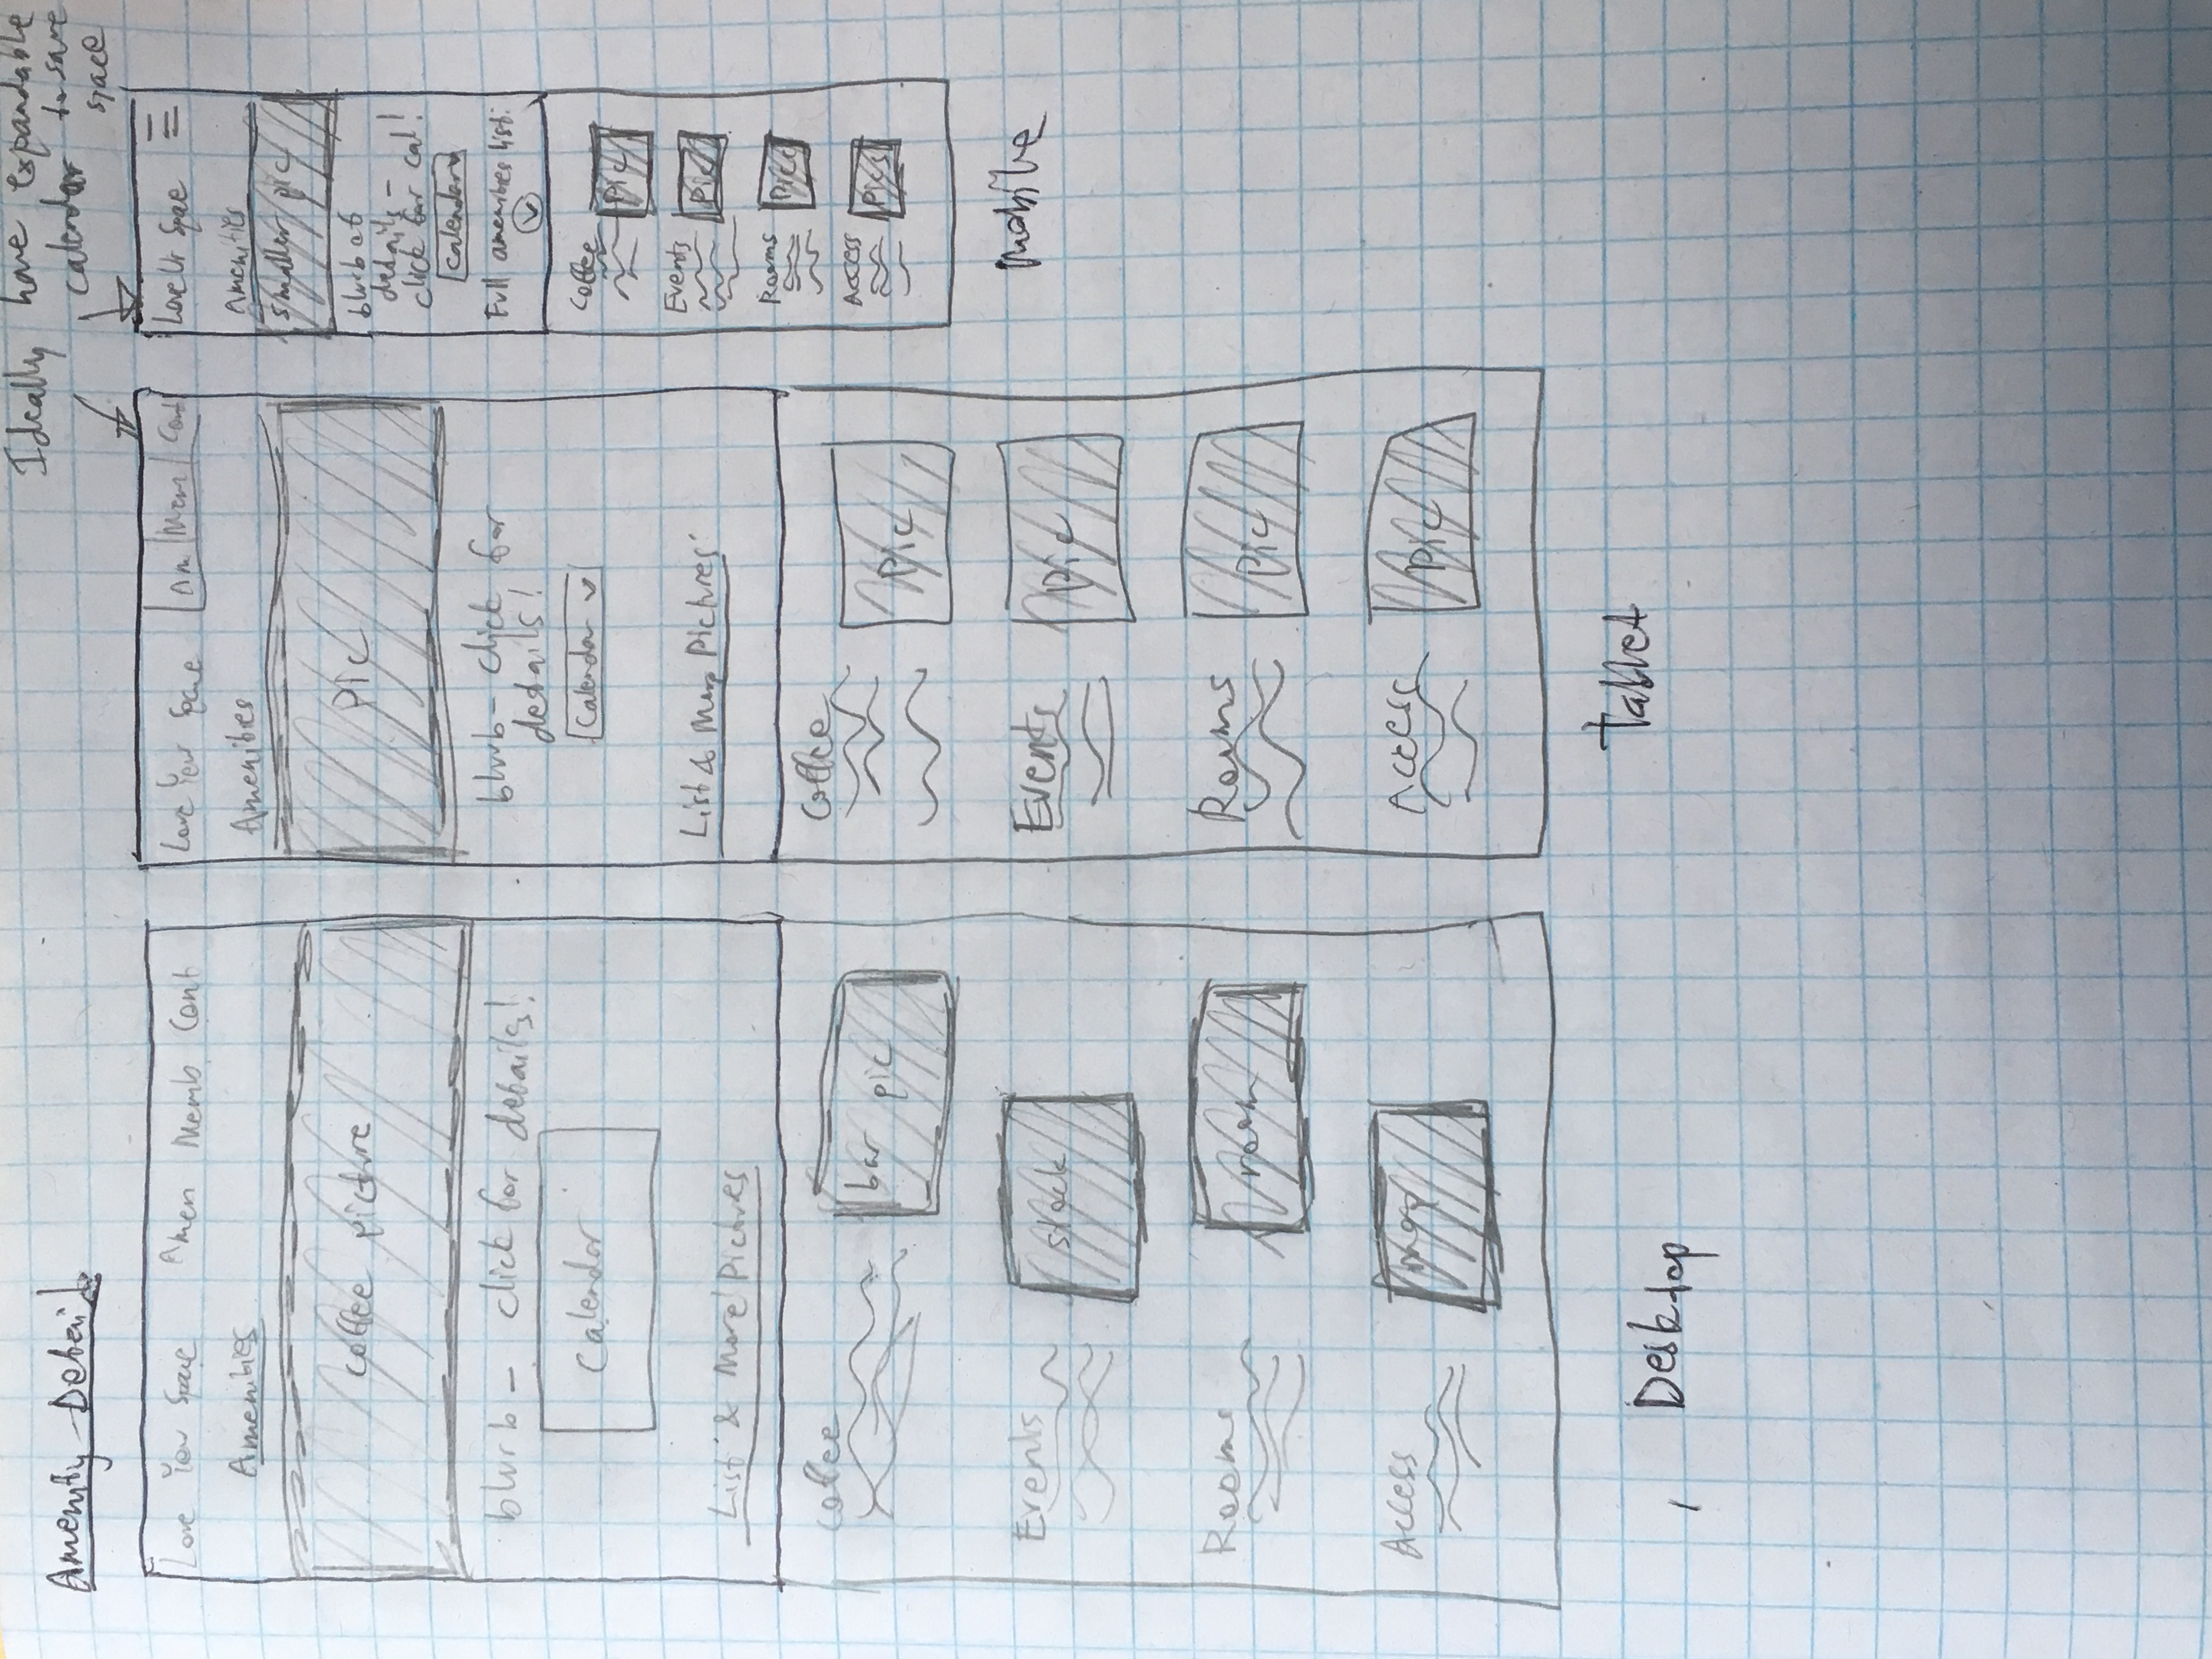 Amenity Details
Ideally have expandable
calendar to save
space
Love Your Space Amen Memb Cont
Amenities
coffee picture
blurb - click for details!
Calendar
List & More Pictures
Coffee
bar pic
Events
stock
Rooms
room
Access
map
Desktop
Love Your Space Am Mem Cont
Amenities
Pic
blurb - click for
details!
Calendar
List & More Pictures
Coffee
Pic
Events
Pic
Rooms
Pic
Access
Pic
Tablet
Love Ur Space
Amenities
smaller pic
blurb at
details -
click for cal!
Calendar
Full amenities list:
Coffee
Pic
Events
Pic
Rooms
Pic
Access
Pics
Mobile